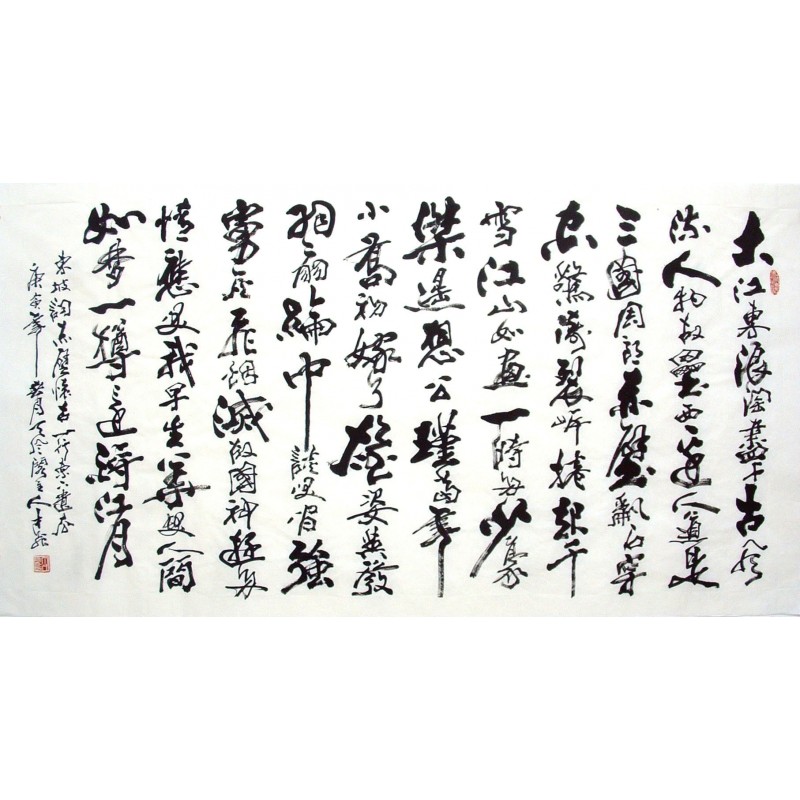 大江東浪淘盡千古風
流人物故壘西邊人道是
三國周郎赤壁亂石穿
空驚濤裂岸捲起千
雪江山如畫一時多少豪
傑遙想公瑾當年
小喬初嫁了雄姿英發
羽扇綸巾談笑間強
虜灰飛烟滅故國神遊多
情應笑我早生華髮人間
如夢一樽還酹江月
東坡詞赤壁懷古一
庚寅年月主人